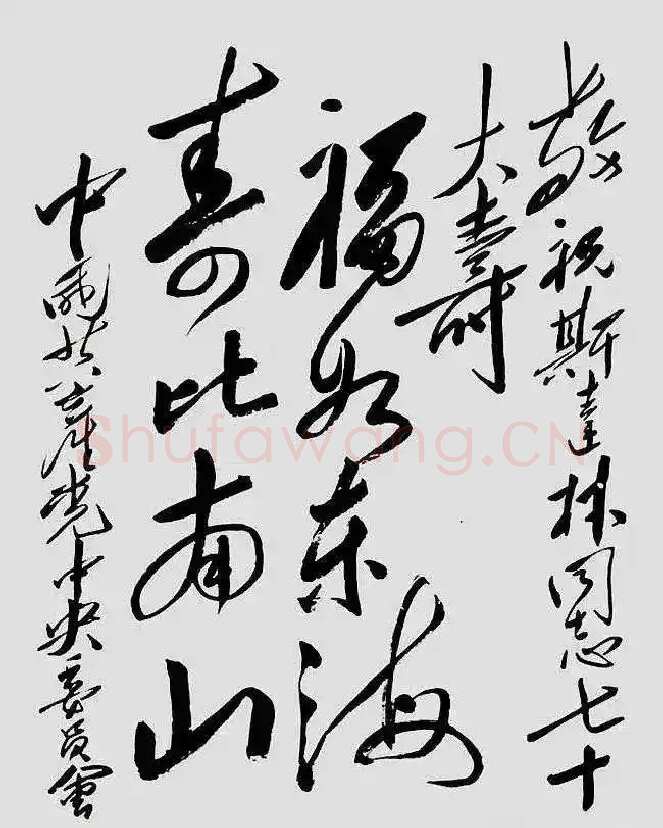 敬祝斯達林同志七十
大壽
福如东海
寿比南山
中國共產党中央委員會
Shufawang.CN